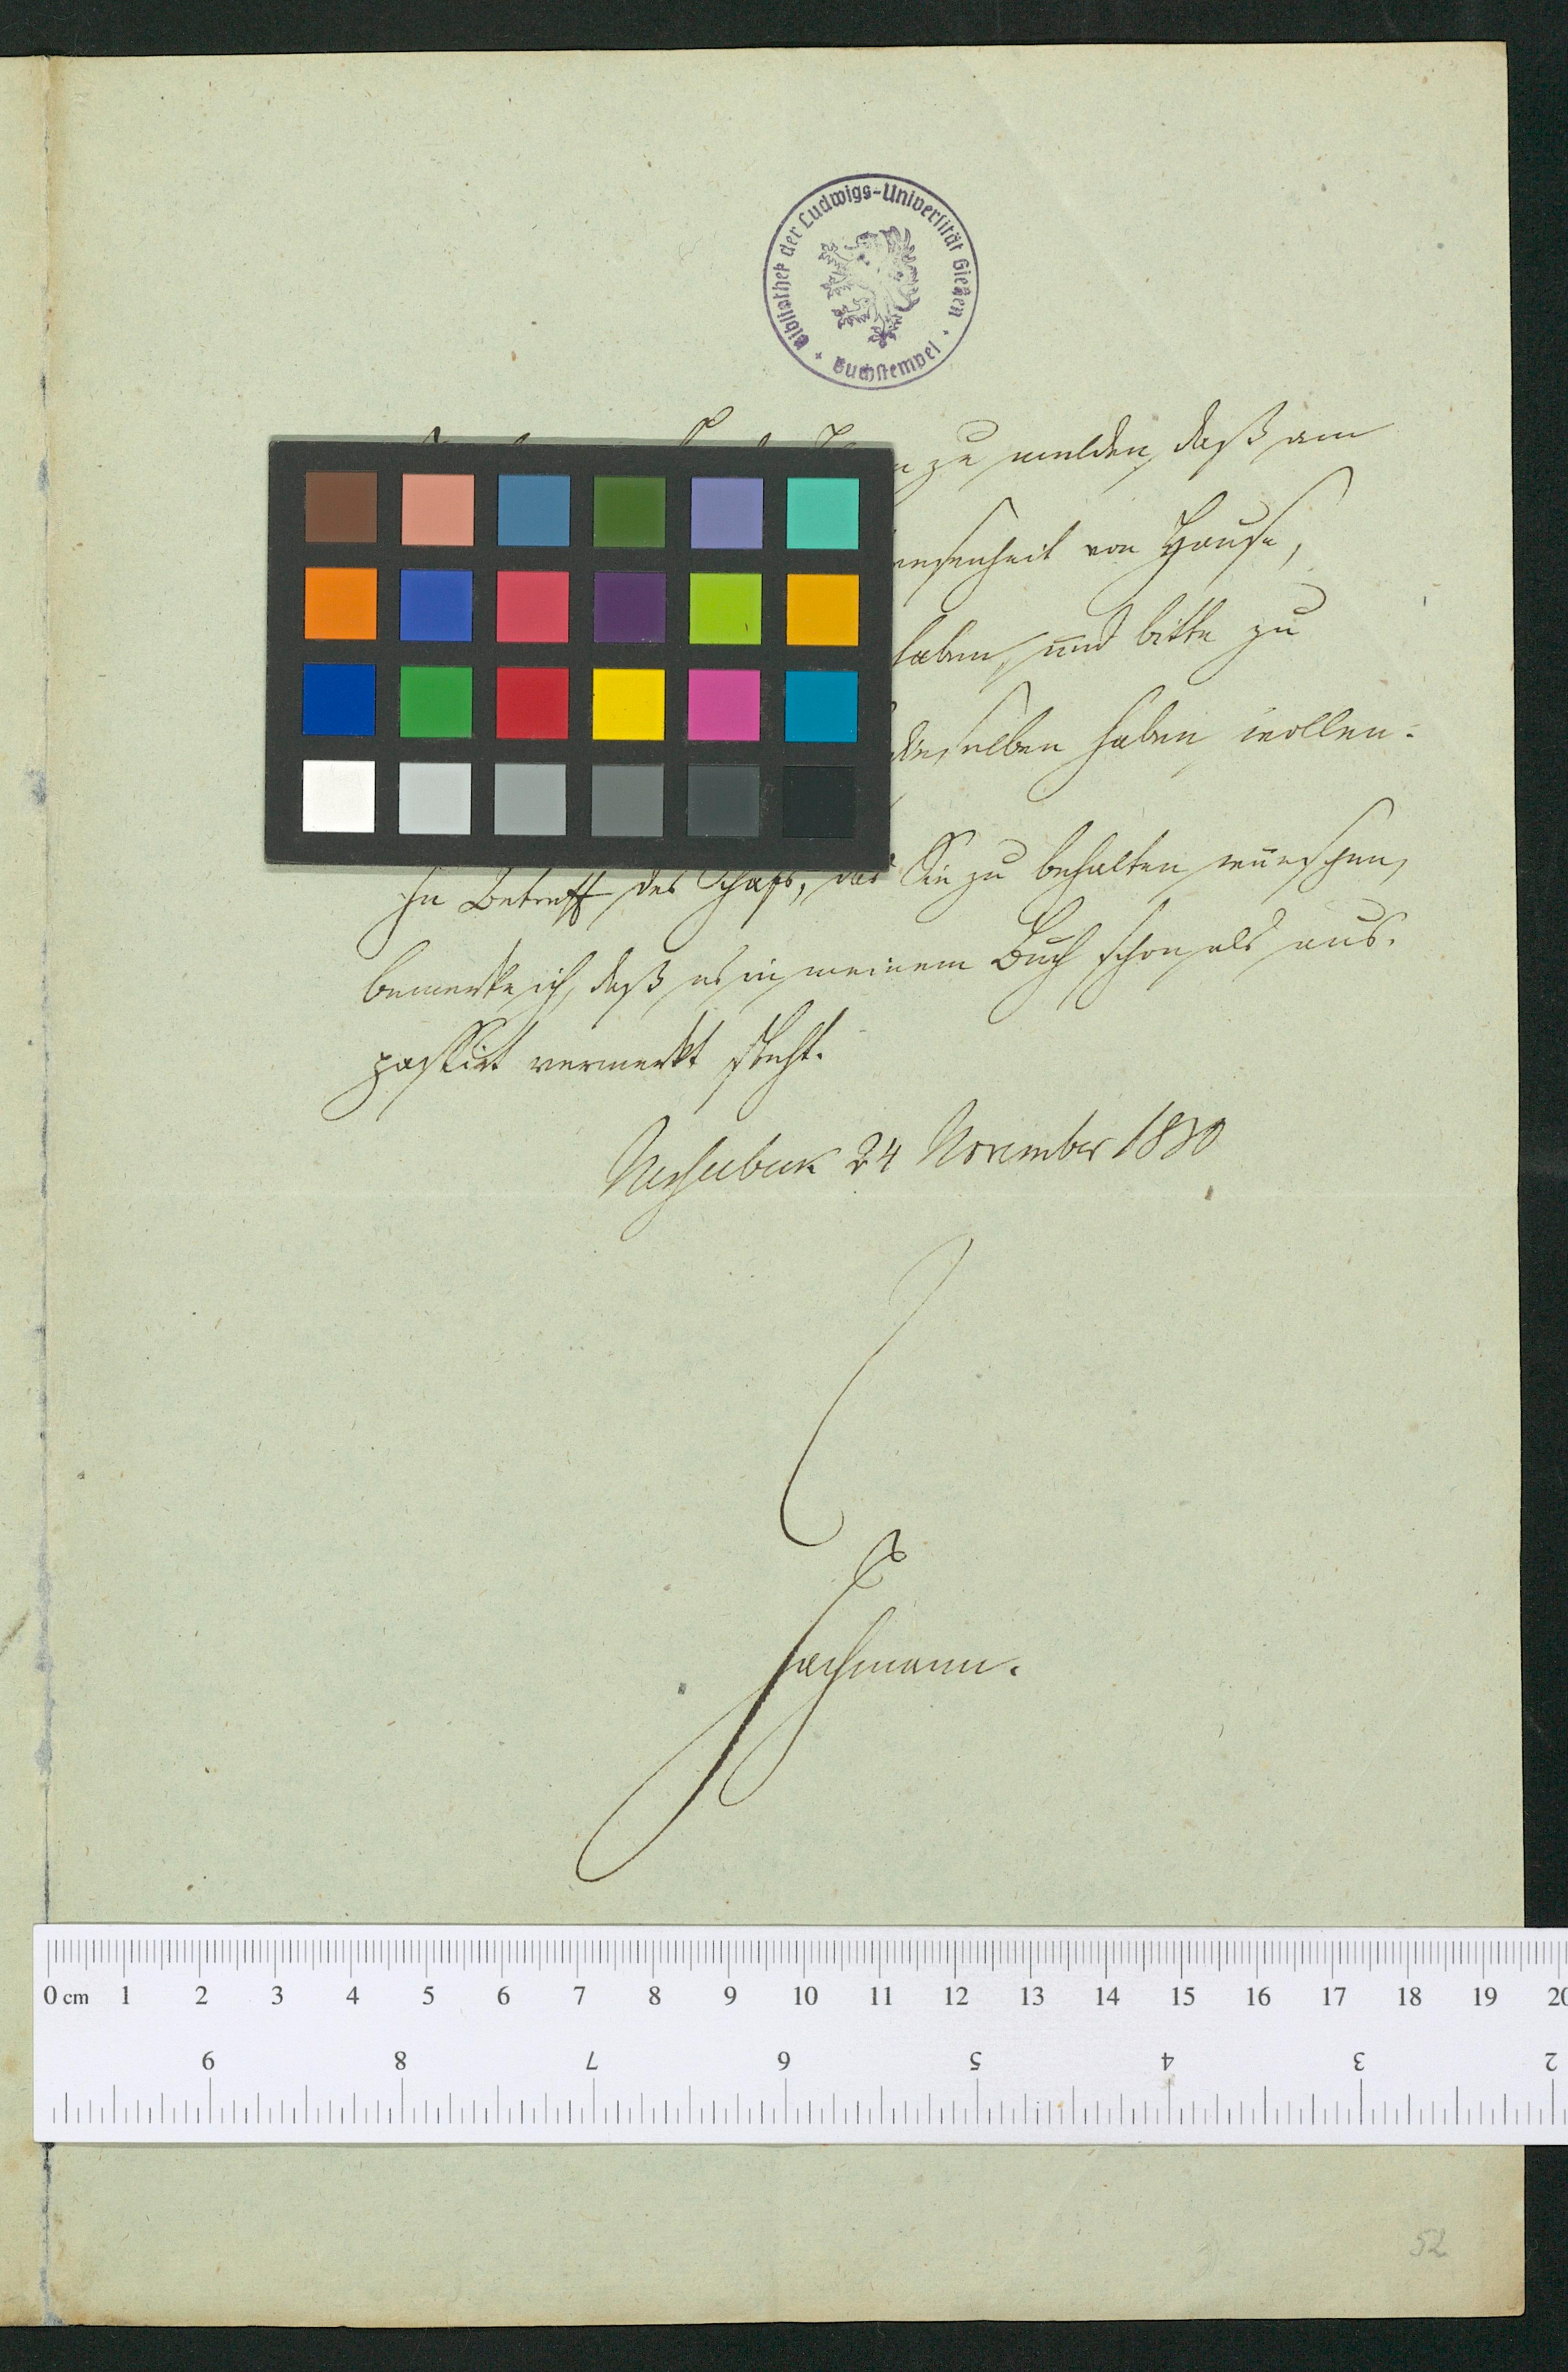 Bibliothek der Ludwigs-Universität Gießen
+ Buchstempel +
zu melden, daß am
von Hause,
haben, und bitte zu
dieselben haben wollen.
In Betreff des Schafs, das Sie zu behalten wünschen,
bemerke ich, daß es in meinem Buch schon als aus-
passirt vermerkt steht.
24 November 1830
0 cm 1 2 3 4 5 6 7 8 9 10 11 12 13 14 15 16 17 18 19 20
9 8 7 6 5 4 3 2
52